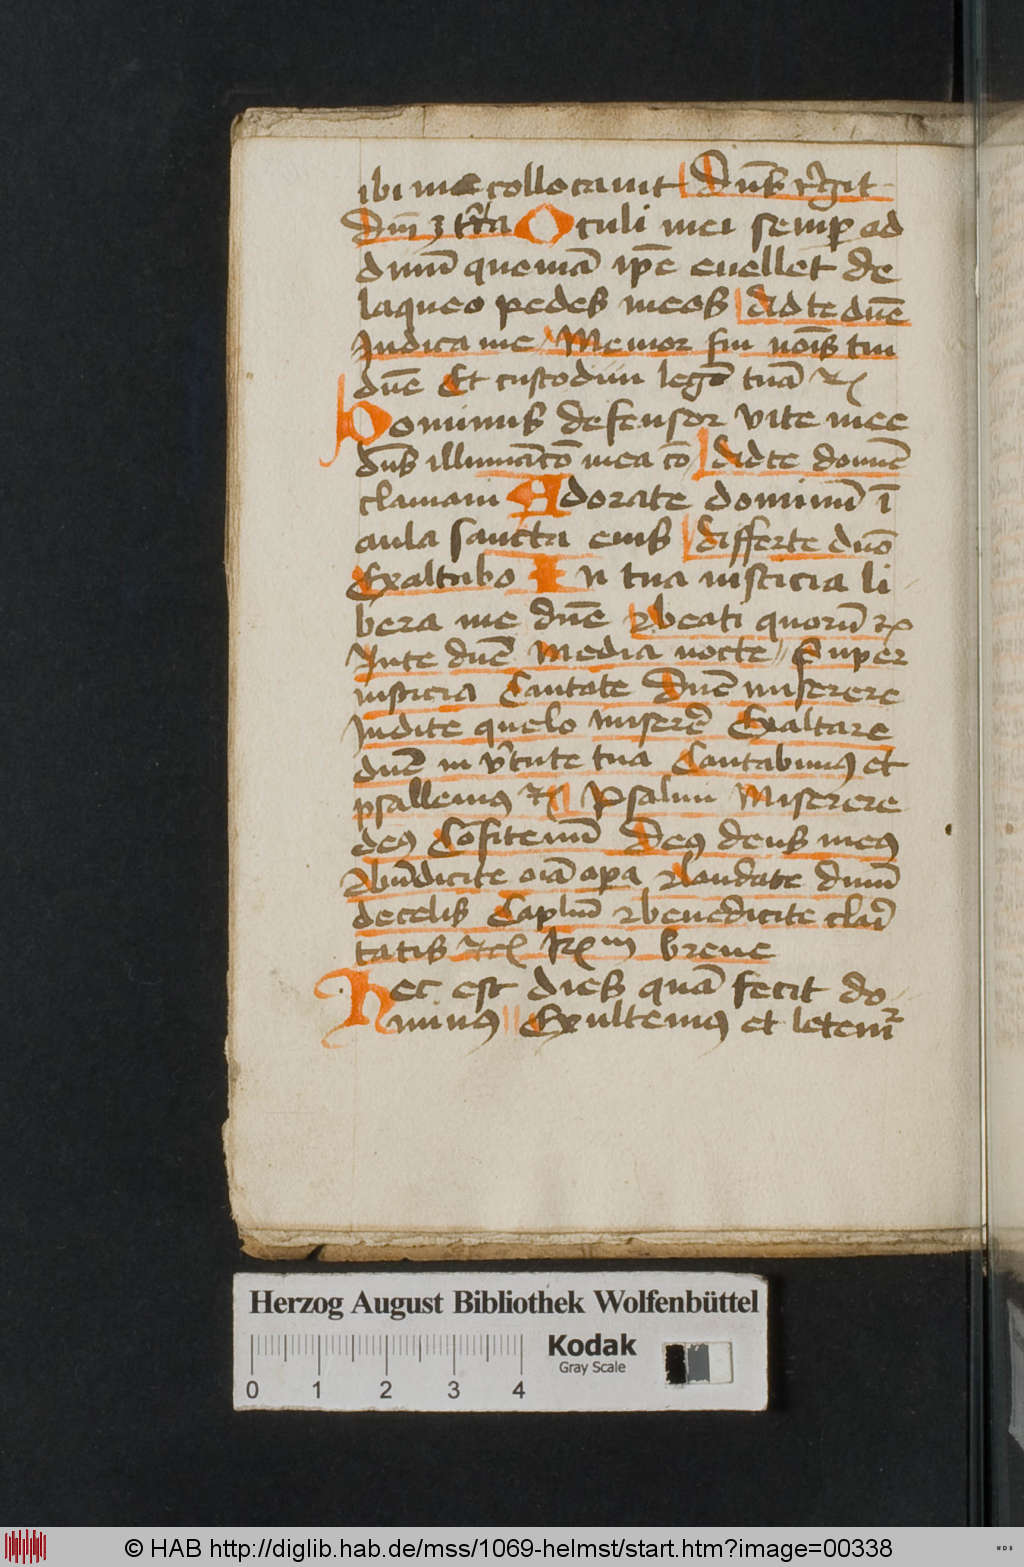 ibi me collocauit Dn̄s r̾git
Dn̄i ꝫ tr̄a Oculi mei semꝑ ad
dnm̄ quoniā ip̄e euellet de
laqueo pedes meos Ad te dn̄e
Judica me Memor fui nōis tui
dn̄e Et custodiui legē tuā ⁊c
Dominus defensor vite mee
dn̄s illumīatō mea tō Ad te domīe
clamaui Adorate dominū ī
aula sancta eius Afferte dn̄o
Exaltabo In tua iusticia li
bera me dn̄e ⁊ beati quorū ⁊c
In te dn̄e Media nocte Super
iusticia Cantate Dn̄e miserere
Judite quelo miserē Exaltare
dn̄e in v̾tute tua Cantabimꝰ et
psallemꝰ ⁊c Psalmi Miserere
deꝰ Cōfitemī Deꝰ deus meꝰ
Bn̄dicite oīa oꝑa Laudate dnm̄
de celis Caplm̄ ⁊ benedicite clāi
tatis ⁊c℟m breue
Hec est dies quā fecit do
minꝰ Exultemꝰ et letem̄
Herzog August Bibliothek Wolfenbüttel
Kodak
Gray Scale
0 1 2 3 4
© HAB http://diglib.hab.de/mss/1069-helmst/start.htm?image=00338